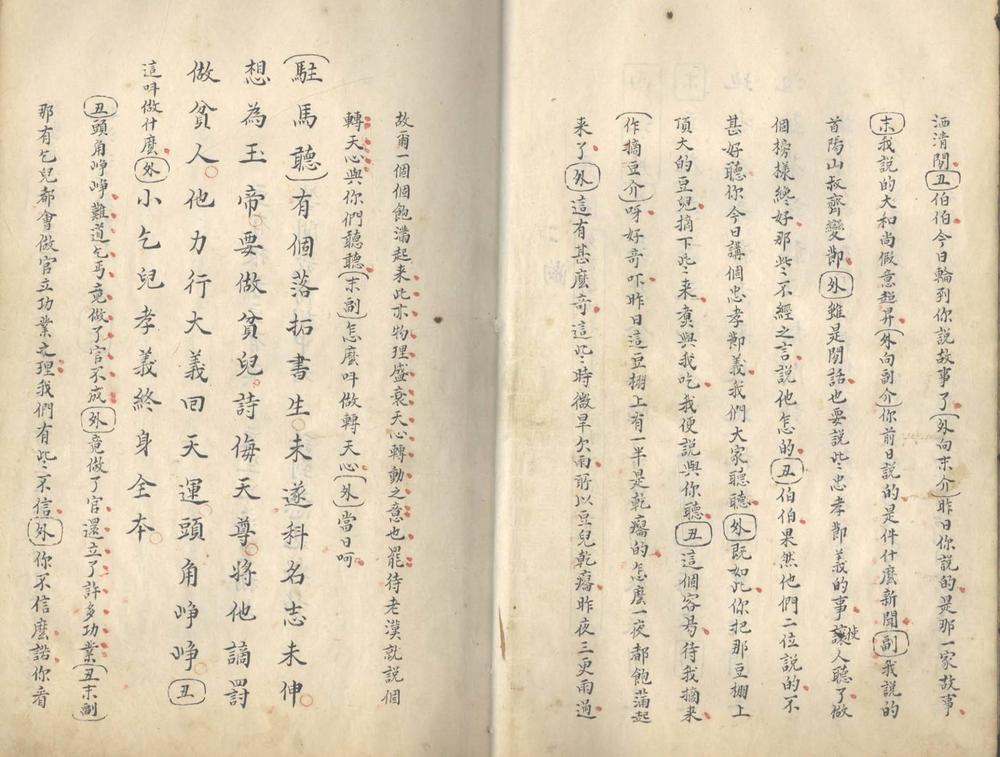 洒清閒(丑)伯伯今日輪到你説故事了(外向末介)昨日你説的是那一家故事
(末)我説的大和尚假意超昇(外向副介)你前日説的是件什麽新聞(副)我説的
首陽山叔齊變節(外)雖是閒話也要説些忠孝節義的事讓使人聽了做
個榜樣終好那些不經之言説他怎的(丑)伯伯果然他們二位説的不
甚好聽你今日講個忠孝節義我們大家聽聽(外)既如此你把那豆棚上
頂大的豆兒摘下些來煑與我吃我便説與你聽(丑)這個容易待我摘來
(作摘豆介)呀好奇吓昨日這豆棚上有一半是乾癟的怎麽一夜都飽滿起
来了(外)這有甚麽奇這些時微旱欠雨所以豆兒乾癟昨夜三更雨過
故爾一個個飽滿起来此亦物理盛衰天心轉動之意也罷待老漢就説個
轉天心與你們聽聽(末副)怎麽呌做轉天心(外)當日呵
(駐馬聽)有個落拓書生未遂科名志未伸
想為玉帝要做貧兒詩侮天尊將他謫罸
做貧人他力行大義回天運頭角崢崢(丑)
這呌做什麽(外)小乞兒孝義終身全本
(丑)頭角崢崢難道乞丐竟做了官不成(外)竟做了官還立了許多功業(丑末副)
那有乞兒都會做官立功業之理我們有些不信(外)你不信麽諾你看